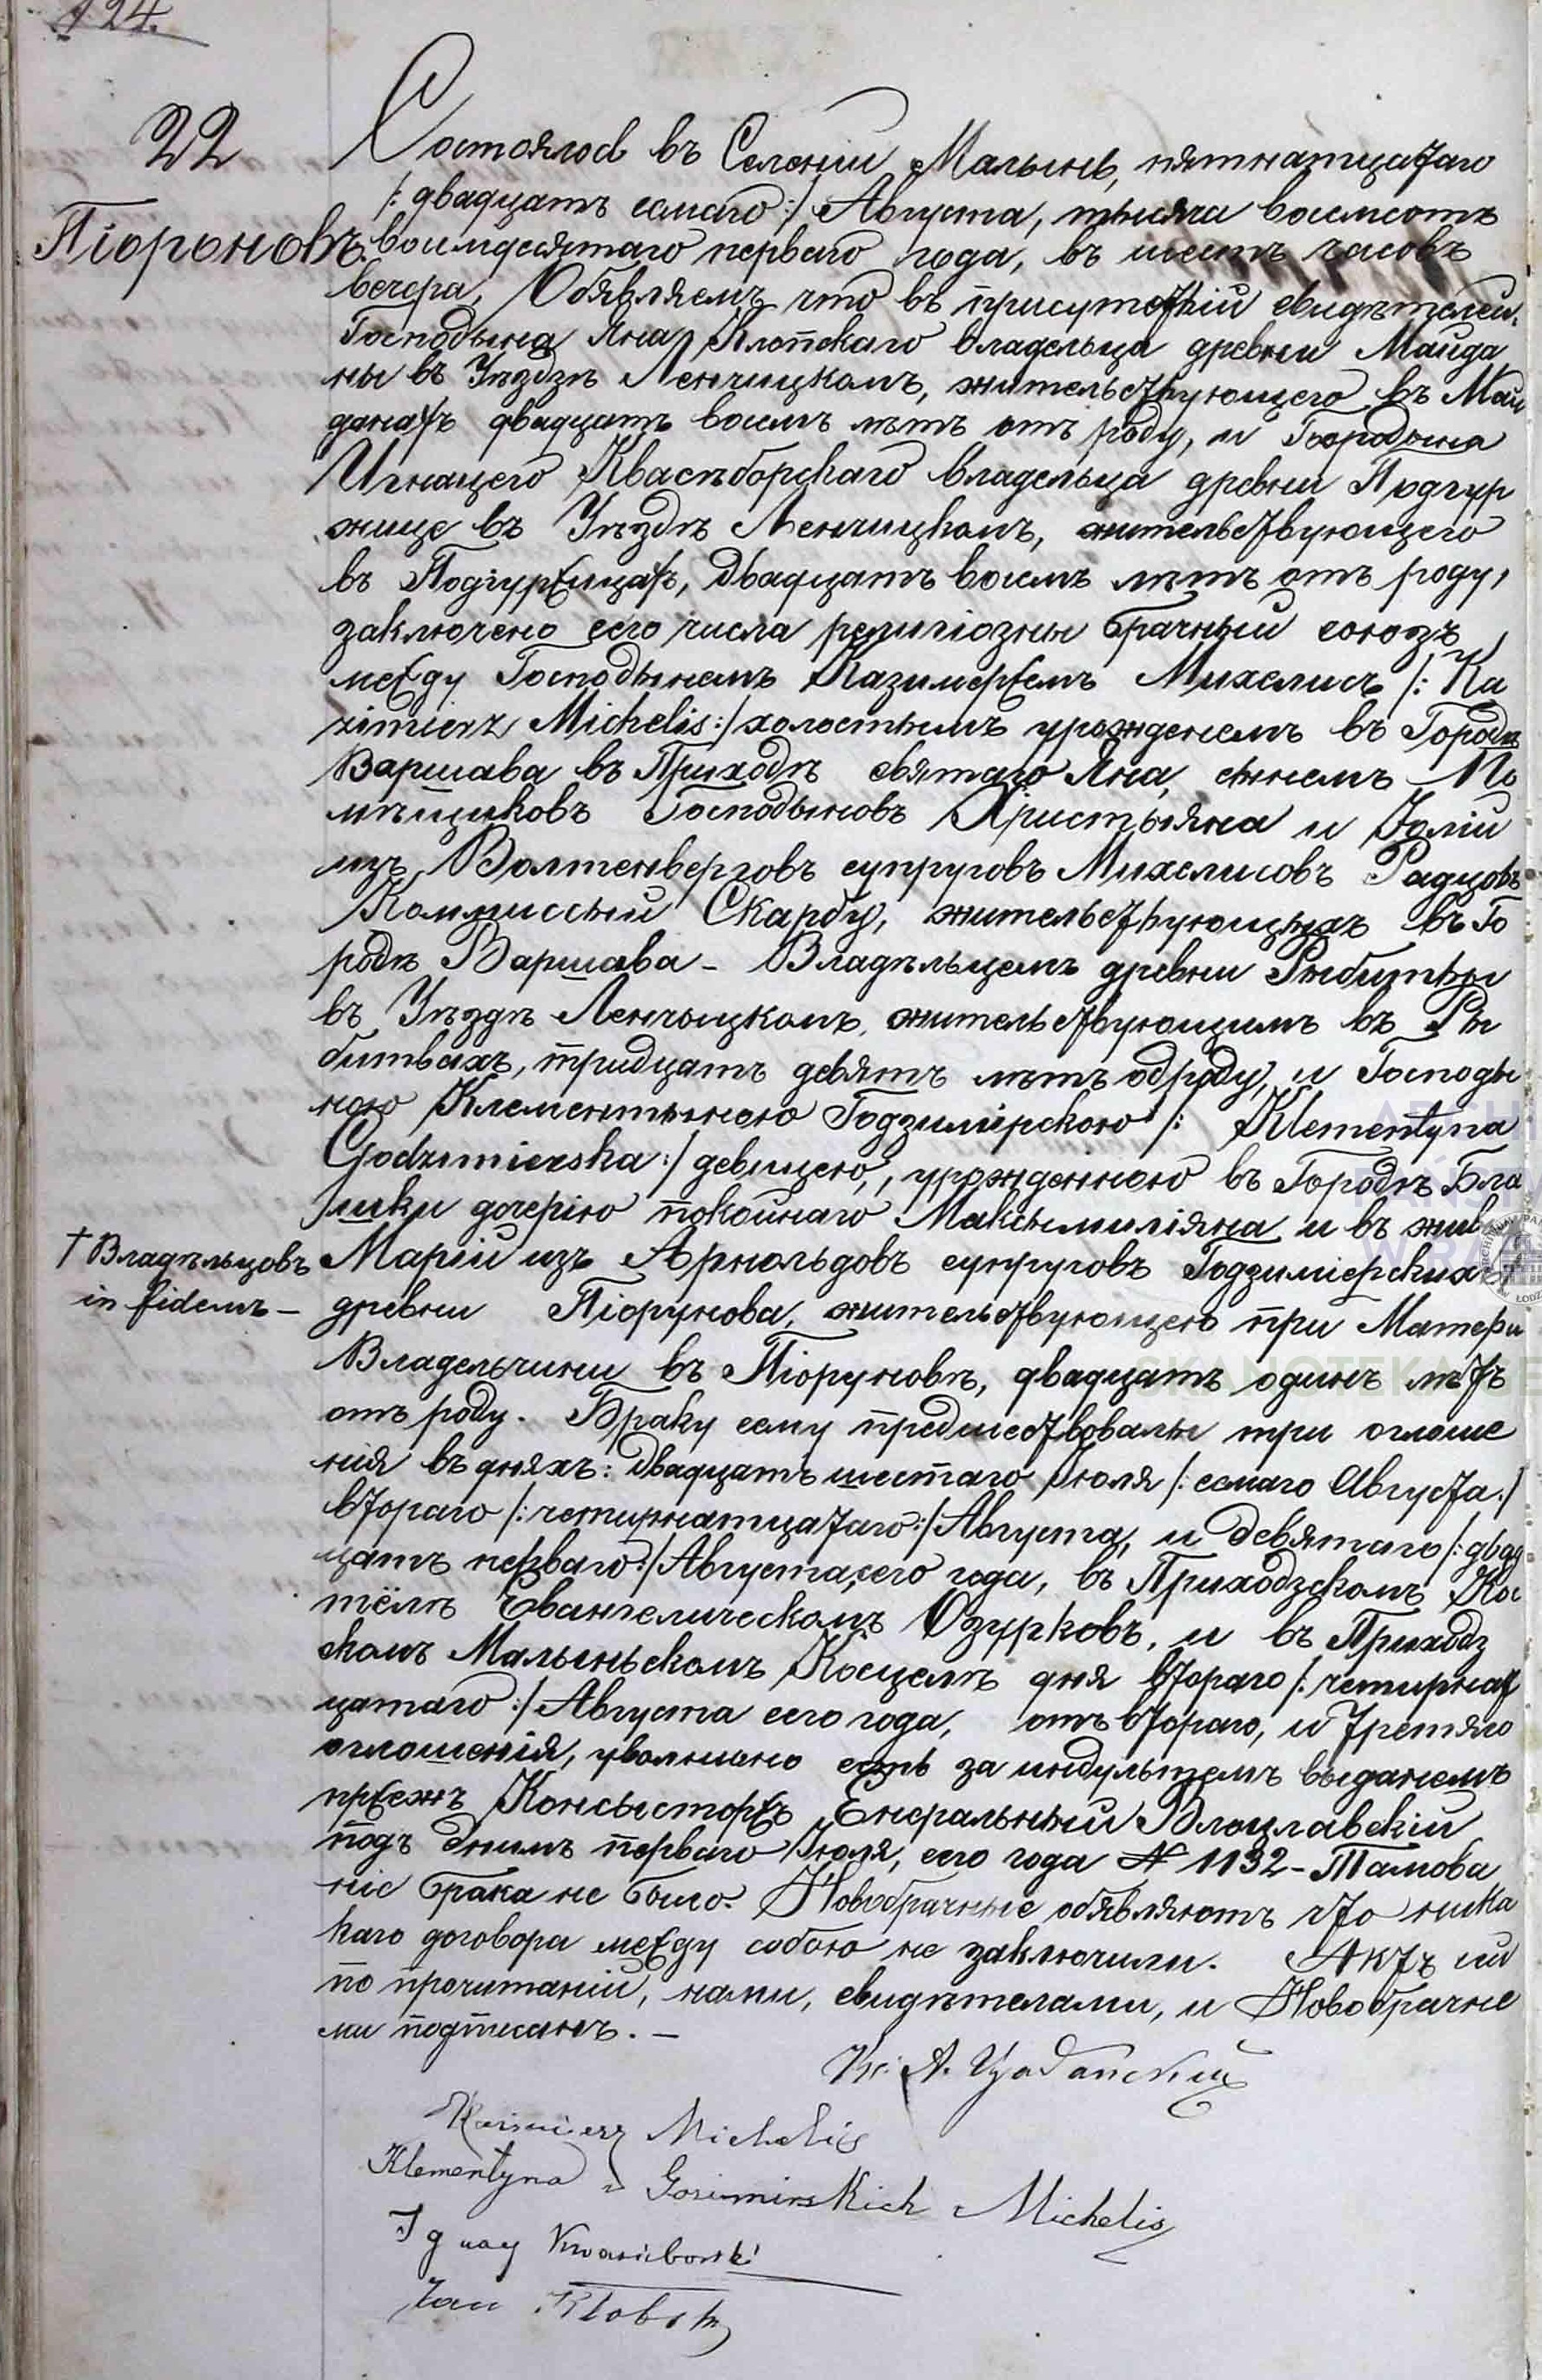 124.
22
Піороновъ.
Состоялось въ Селеніи Малынь, пятнатцатаго
/: двадцать самаго :/ Августа, тысяча восемсотъ
восимдесятаго перваго года, въ шесть часовъ
вечера, Обявляемъ что въ присутствіи свидѣтелеи.
Господына Яна Клопскаго владельца древни Маида
ны въ Уѣздѣ Ленчицкомъ, жительствующего въ Маи
данахъ двадцать восемъ лѣтъ отъ роду, и Госродына
Игнацего Квасѣборскаго владельца древни Подгур
жице въ Уѣздѣ Ленчицкомъ, жительствующего
въ Подгуржицахъ, двадцать восемъ лѣтъ отъ роду,
заключено сего числа религіозны брачныи союзъ
между Господынемъ Казимержемъ Михелисъ /: Ka
zimierz Michelis :/ холостымъ урожденемъ въ Городѣ
Варшава въ Приходѣ святаго Яна, сынемъ По
мѣщиковъ Господыновъ Христыяна и Юліи
изъ Волтенберговъ супруговъ Михелисовъ Радцовъ
Коммиссыи Скарбу, жительствующыхъ въ Го
родѣ Варшава – Владѣльцемъ древни Рыбитвы
въ Уѣздѣ Ленчыцкомъ, жительствующимъ въ Ры
битвахъ, тридцать девять лѣтъ одроду, и Господы
ною Клементыною Годзимірскою /: Klementyna
Godzimierska :/ девицею, урожденною въ Городѣ Бла
шки дочерію покойнаго Максымиліяна и въ жив
Маріи изъ Арнольдовъ супруговъ Годзиміерскихъ †
† Владѣльцовъ
in fidem –
древни Піорунова, жительствующею при Матери
Владельчини въ Піоруновѣ, двадцать одинъ лѣтъ
отъ роду. Браку сему предшествовалы три оглаше
нія въ дняхъ: двадцать шестаго Іюля /: самаго Августа :/
втораго /: четырнатцатаго :/ Августа, и девятаго /: двад
цать перваго :/ Августа, сего года, въ Приходзскомъ Кос
тёлѣ Евангелическомъ Озурковъ, и въ Приходз
скомъ Малыньскомъ Косцелѣ дня втораго /: четырнат
цатаго :/ Августа сего года, отъ втораго, и третяго
оглошенія, уволнено есть за индультемъ выданемъ
пржежъ Консысторжъ Енеральныи Влоцлавскіи
подъ днимъ перваго Іюля, сего года № 1132 – Тамова
ніе брака не было. Новобрачные обявляютъ что ника
каго договора между собою не заключили. Актъ сіи
по прочитаніи, нами, свидѣтелами, и Новобрачне
ми подписанъ. –
Kazimierz Michelis
Klementyna z Gozimirskich Michelis
Ignacy Kwasieborski
Jan